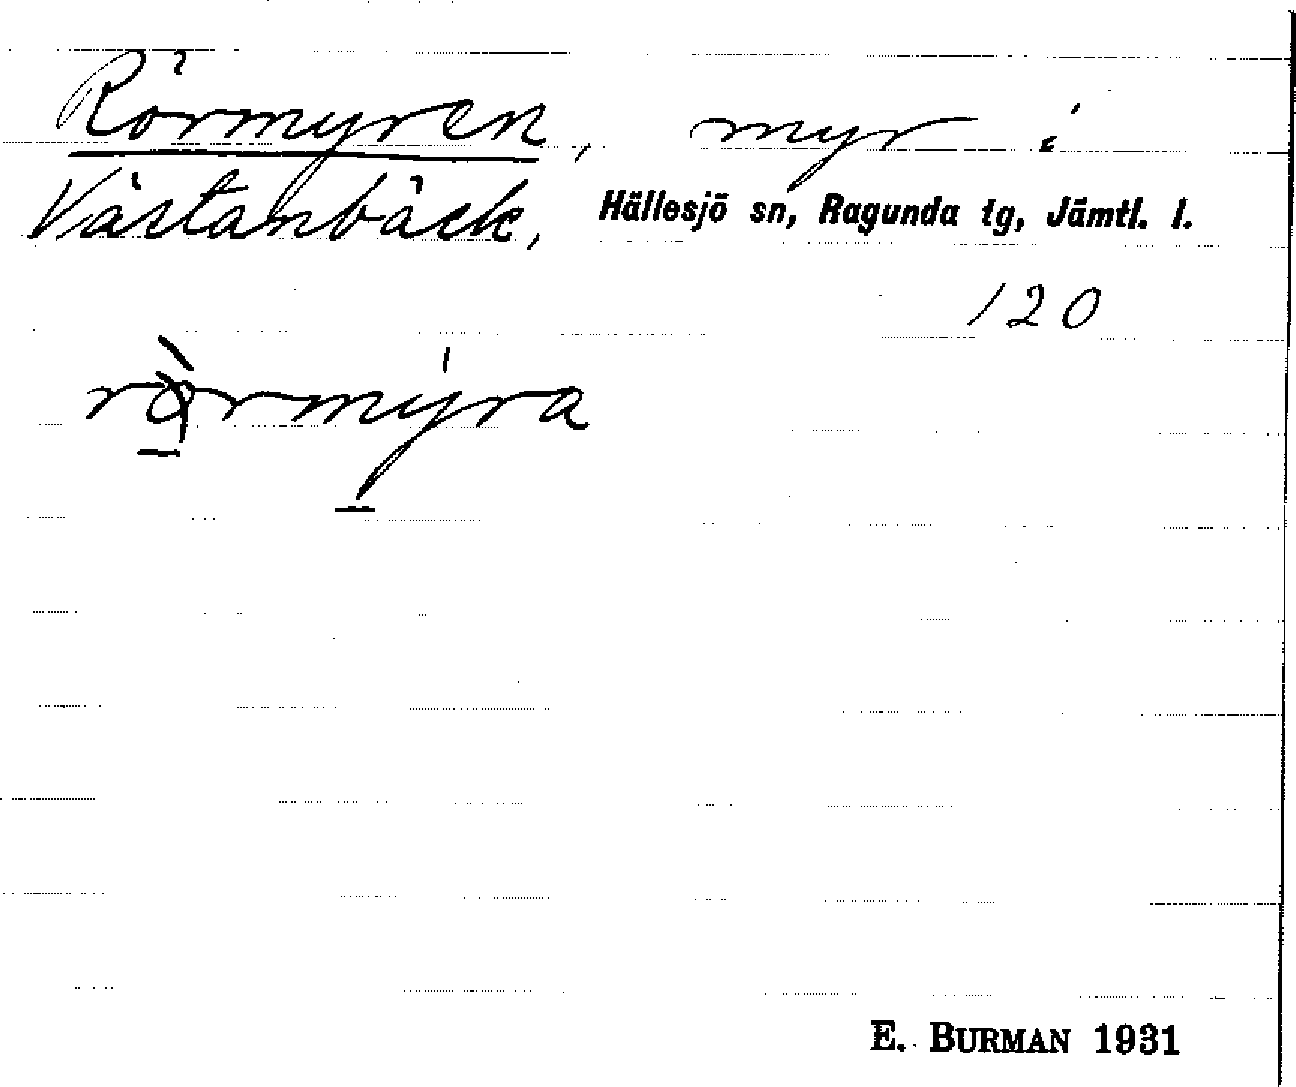 Rörmyren, myr i
Västanbäck, Hällesjö sn, Ragunda tg, Jämtl. l.
120
E. BURMAN 1931